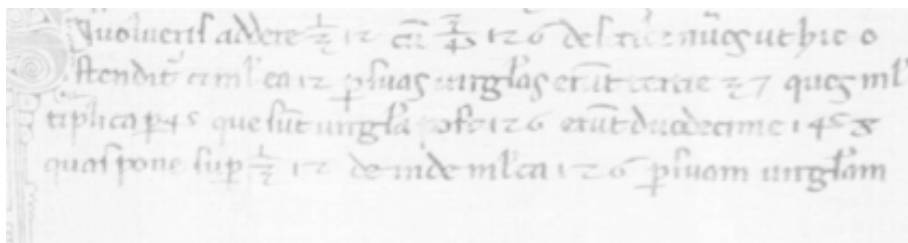 uolueris addere 1/3 12 cū 3/4 126 nūeꝰ ut hic o
stenditᷣ ml̓ca 12 ꝑ suas uirgl̓as erūt tercie 37 ques ml̓
tiplica ꝑ 4 que sūt uirgl̓a post 126 erūt duodecime 148
quas pone suꝑ 1/3 12 deinde ml̓ca 126 ꝑ suam uirgl̓am